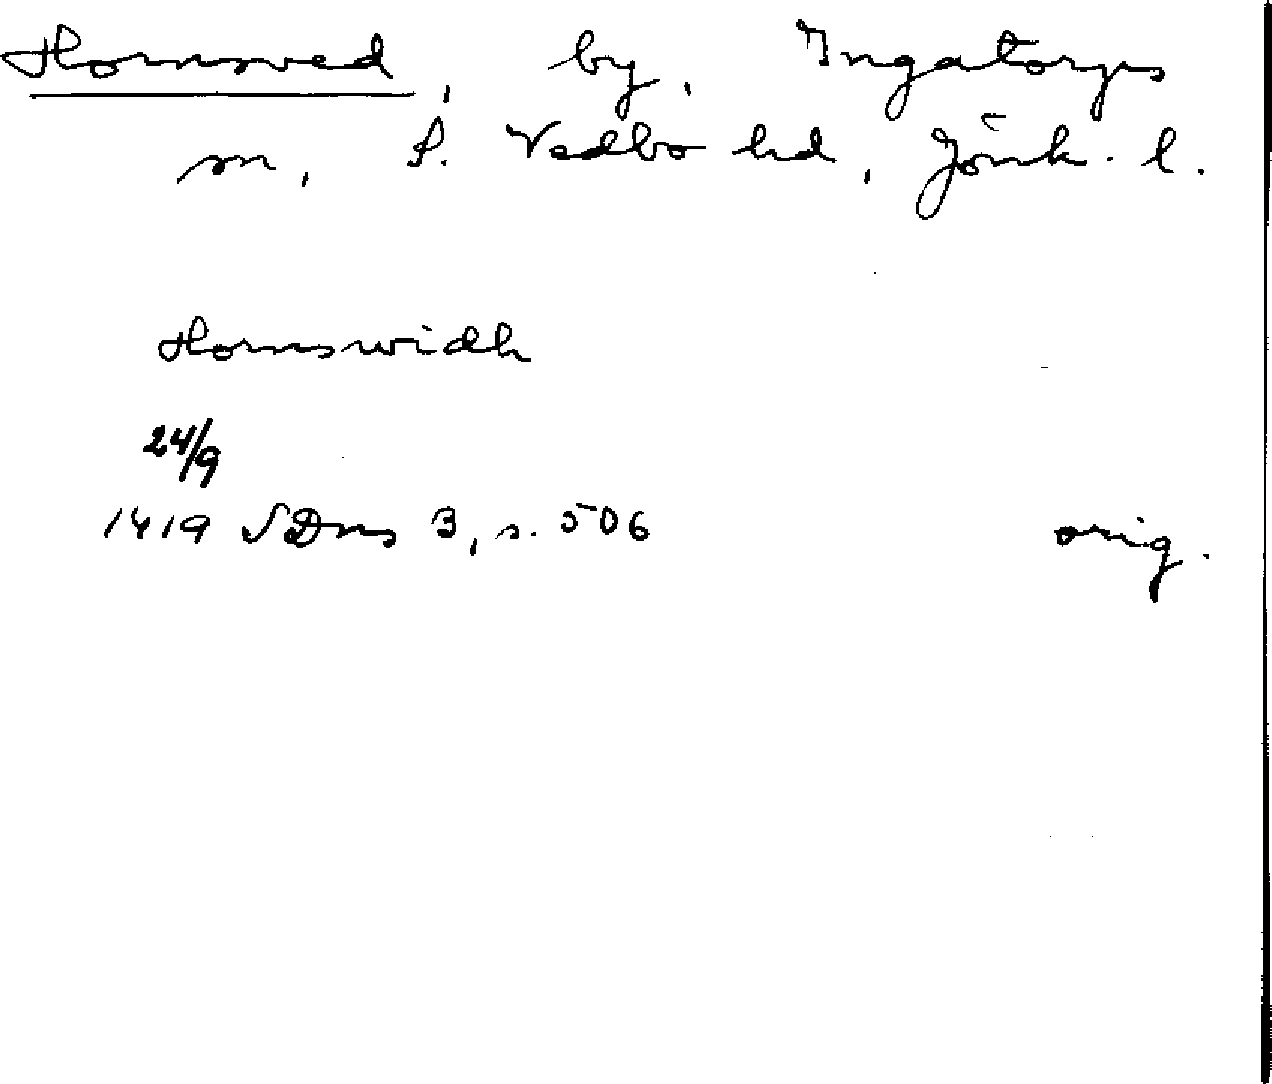 Hornsved, by, Ingatorps
sn, S. Vedbo hd, Jönk. l.
Hornswidh
24/9
1419 SDns 3, s. 506 orig.